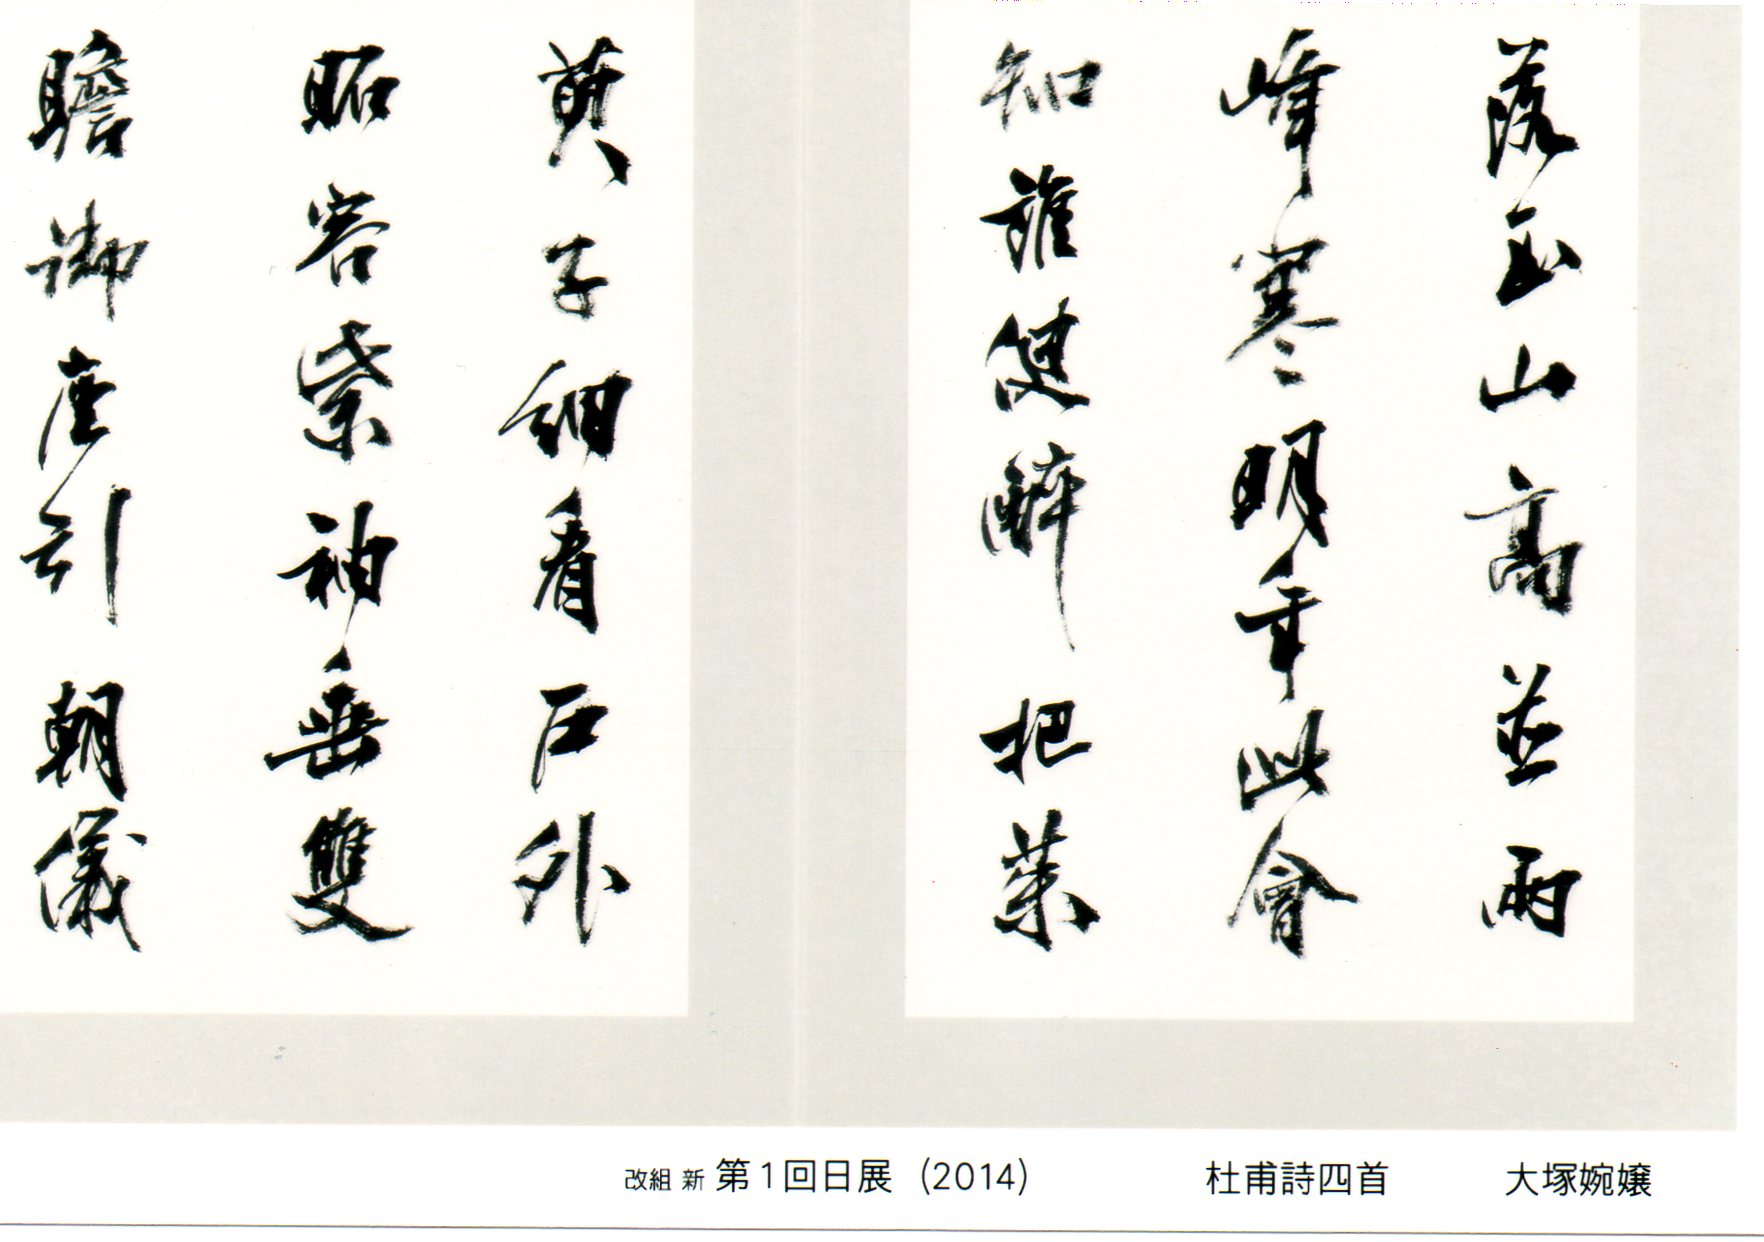 落玉山高並兩
峰寒明年此會
知誰健醉把茱
萸子細看戶外
昭容紫袖垂雙
瞻御座引朝儀
改組 新 第1回日展 (2014) 杜甫詩四首 大塚婉嬢